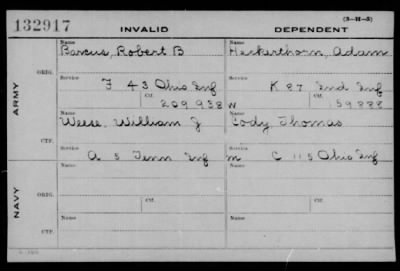 132917 INVALID DEPENDENT (3-H-5)
Name Name
Barcus, Robert B Herkerthorn, Adam
ORIG. Service Service
F 43 Ohio Inf K 87 Ind Inf
Ctf. Ctf.
209938 W 159888
ARMY
Name Name
Weese, William J Cody Thomas
CTF. Service Service
A 5 Tenn Inf m C 115 Ohio Inf
Name Name
ORIG. Service Ctf. Service Ctf.
NAVY
Name Name
CTF. Service Service